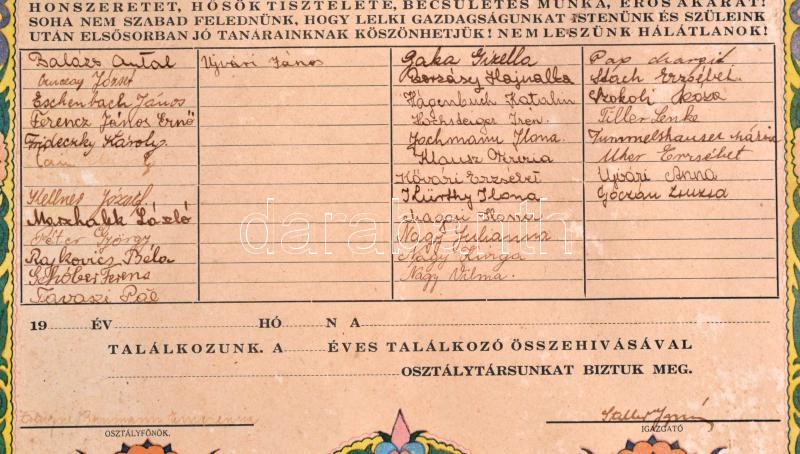 HONSZERETET, HŐSÖK TISZTELETE, BECSÜLETES MUNKA, ERŐS AKARAT!
SOHA NEM SZABAD FELEDNÜNK, HOGY LELKI GAZDAGSÁGUNKAT ISTENÜNK ÉS SZÜLEINK
UTÁN ELSŐSORBAN JÓ TANÁRAINKNAK KÖSZÖNHETJÜK! NEM LESZÜNK HÁLÁTLANOK!
Balázs Antal
József
Eschenbach János
Ferencz János Ernő
Frideczky Károly
Kellner József
Maschalek László
Péter György
Rajkovics Béla
Schóber Ferenc
Tavaszi Pál
Ujvári János
Gaka Gizella
Borsássy Hajnalka
Hágenbuch Katalin
Hochsteiger Iren
Jochmann Ilona
Klausz Mária
Kővári Erzsébet
Kürthy Ilona
Magori Mária
Nagy Julianna
Nagy Kinga
Nagy Vilma
Pap Margit
Stach Erzsébet
Szokoli Rózsa
Tiller Lenke
Tummelshauser Mária
Uher Erzsébet
Ujvári Anna
Góczán Zsuzsa
19 ÉV HÓ N A
TALÁLKOZUNK. A ÉVES TALÁLKOZÓ ÖSSZEHIVÁSÁVAL
OSZTÁLYTÁRSUNKAT BIZTUK MEG.
OSZTÁLYFŐNÖK.
IGAZGATÓ
darabanth